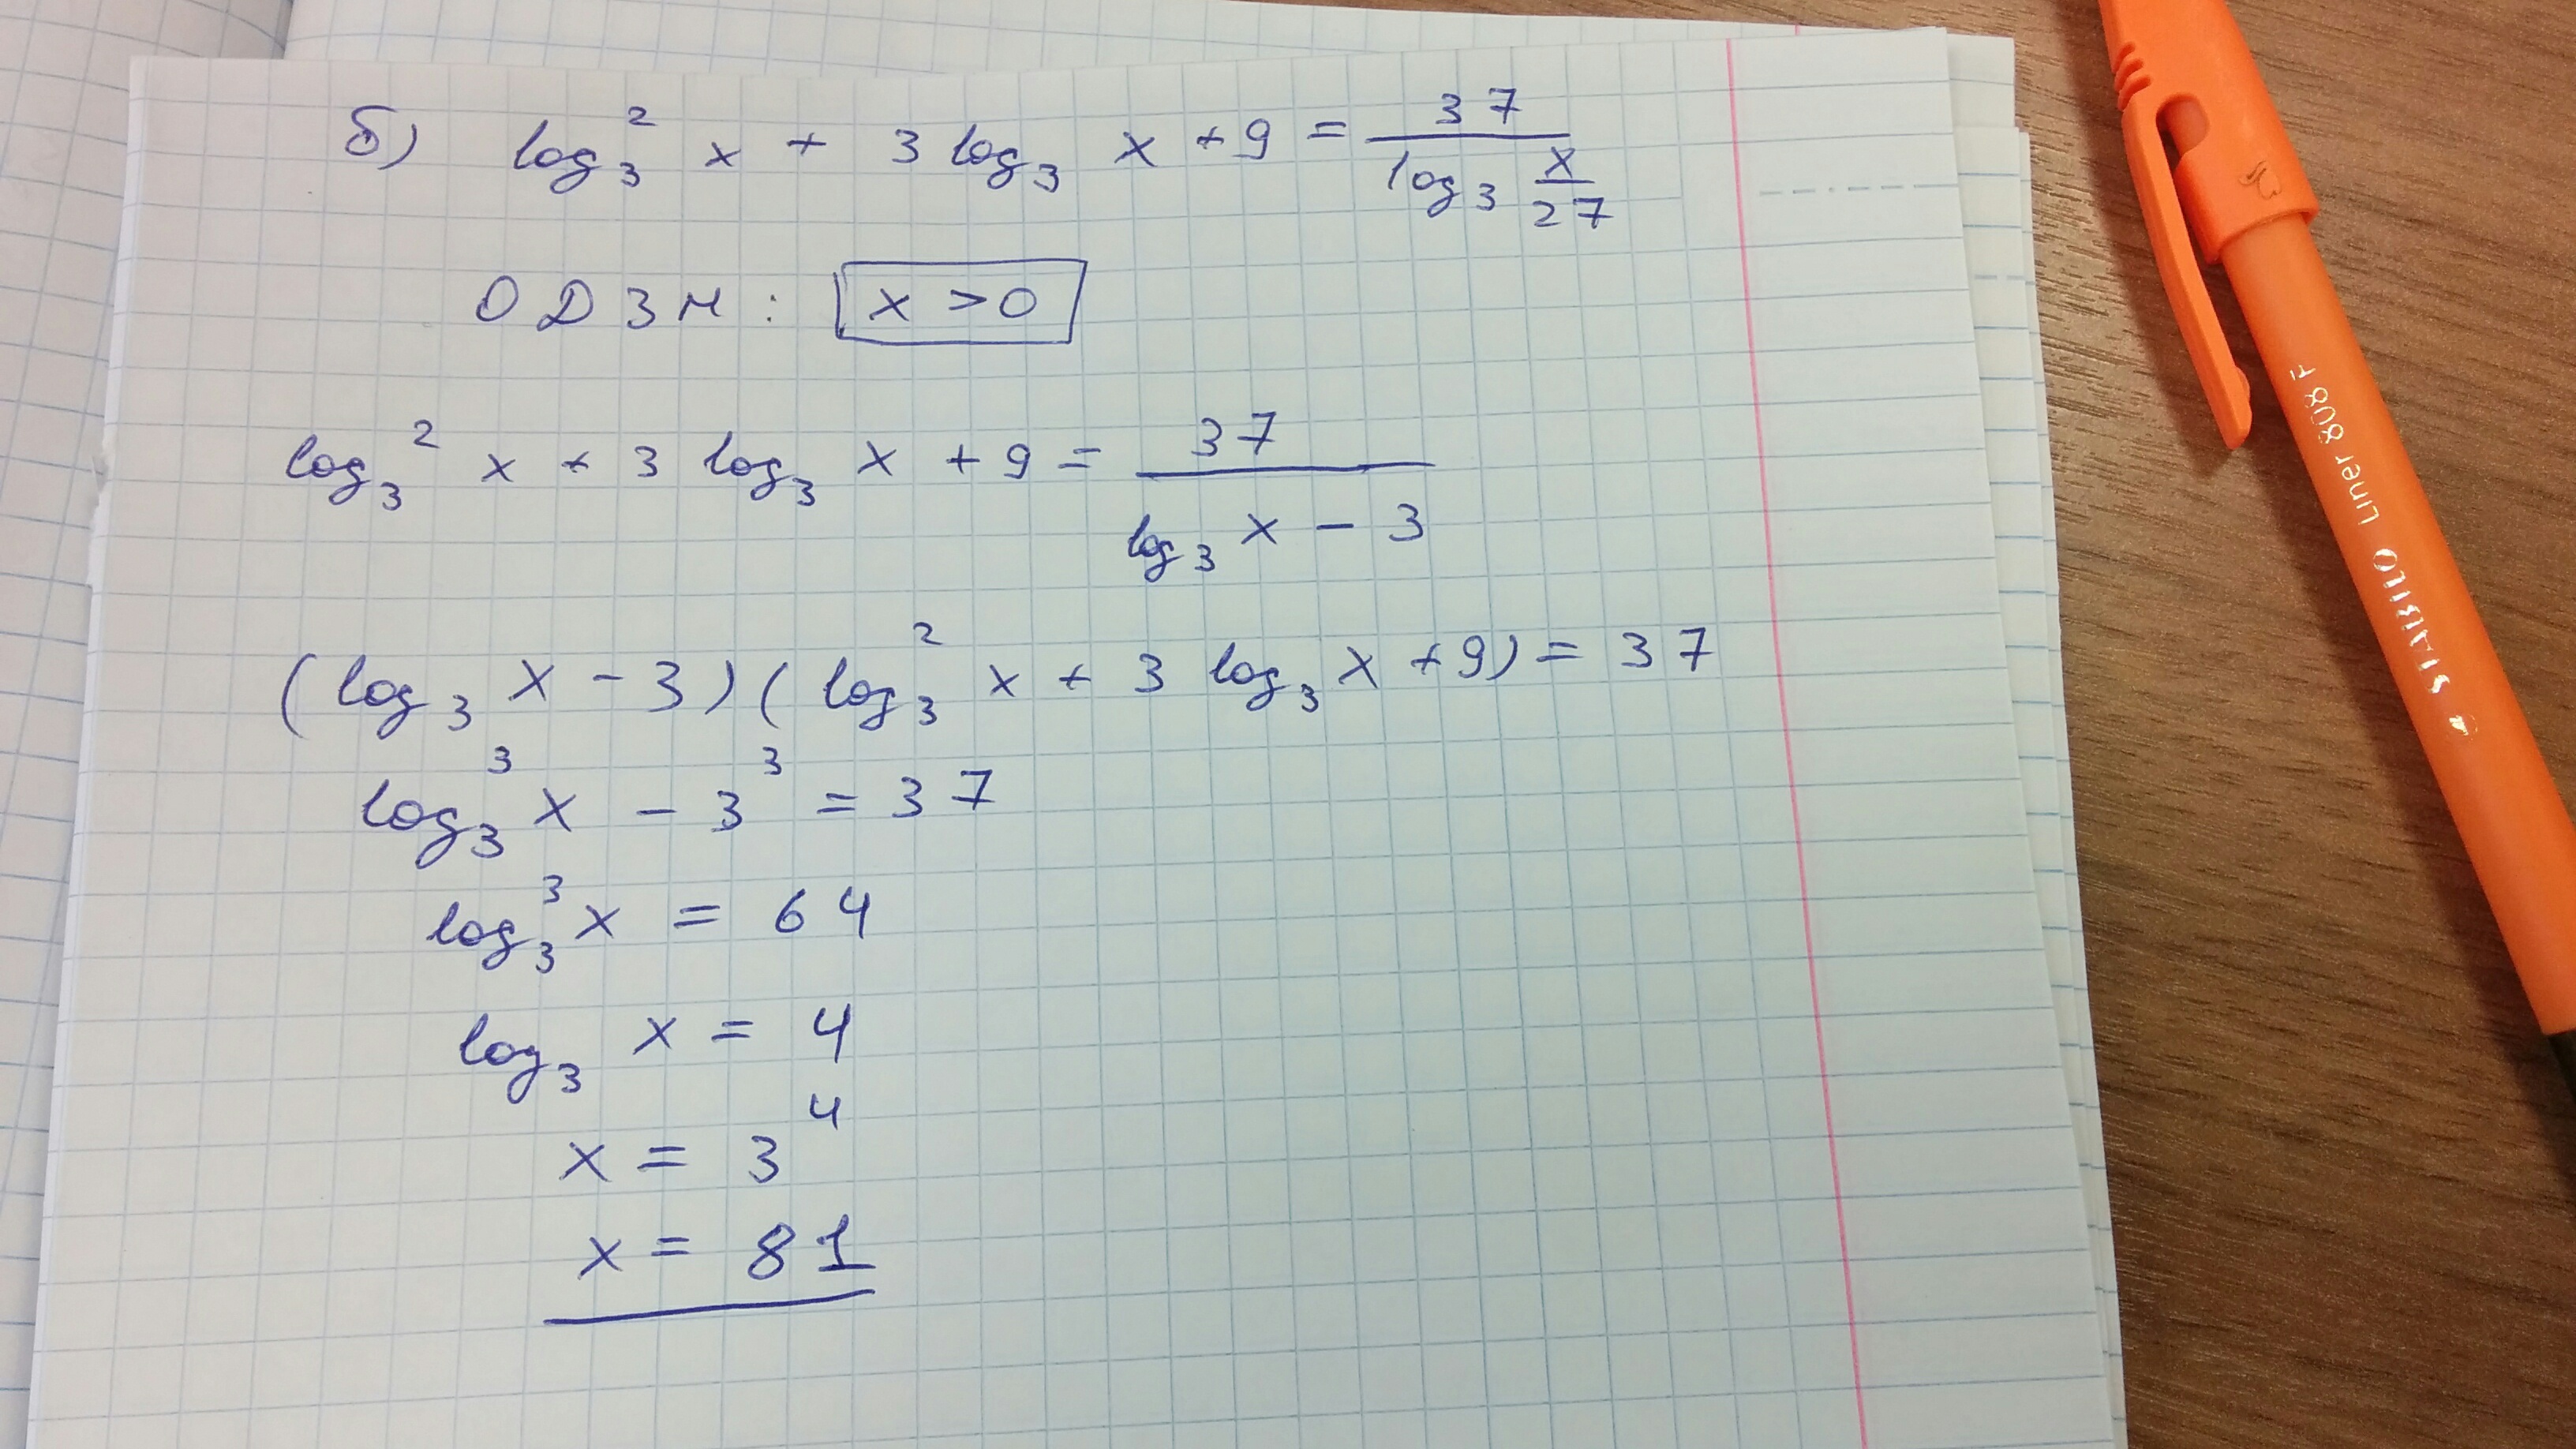 б) log₃² x + 3 log₃ x + 9 = 37 / log₃ x/27
ОДЗН: x > 0
log₃² x + 3 log₃ x + 9 = 37 / log₃ x - 3
(log₃ x - 3)(log₃² x + 3 log₃ x + 9) = 37
log₃³ x - 3³ = 37
log₃³ x = 64
log₃ x = 4
x = 3⁴
x = 81
STABILO Liner 808 F